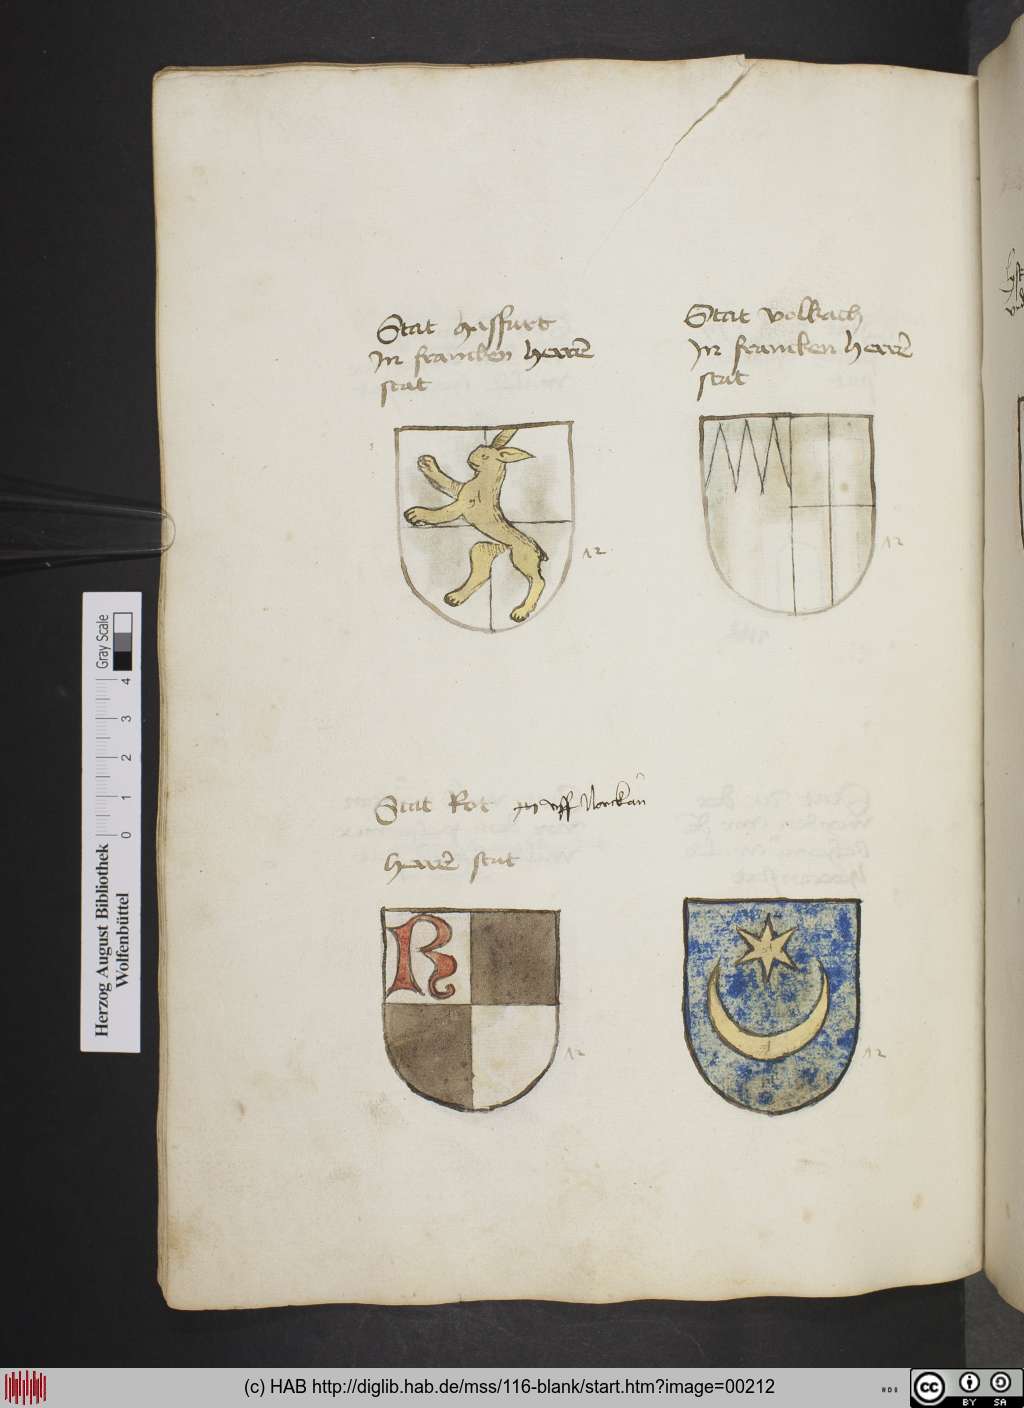 Stat hasfurt
In francken herrē
stat
Stat volkach
In francken herrē
stat
12
12
Stat Rot
herrē stat
R
12
12
Herzog August Bibliothek
Wolfenbüttel
0 1 2 3 4
Gray Scale
(c) HAB http://diglib.hab.de/mss/116-blank/start.htm?image=00212
cc BY SA